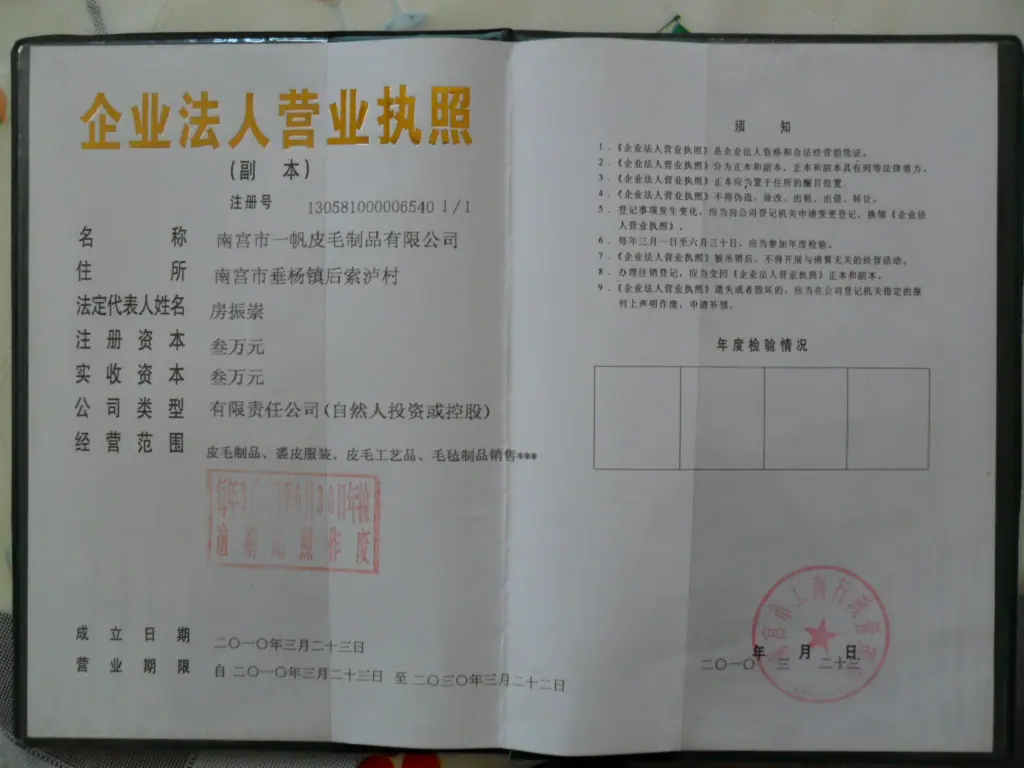 企业法人营业执照
(副 本)
注册号 130581000006540 1/1
名 称 南宫市一帆皮毛制品有限公司
住 所 南宫市垂杨镇后索泸村
法定代表人姓名 房振崇
注 册 资 本 叁万元
实 收 资 本 叁万元
公 司 类 型 有限责任公司(自然人投资或控股)
经 营 范 围 皮毛制品、裘皮服装、皮毛工艺品、毛毡制品销售***
逾 期 此 照 作 废
成 立 日 期 二〇一〇年三月二十三日
营 业 期 限 自 二〇一〇年三月二十三日 至 二〇三〇年三月二十二日
须 知
1．《企业法人营业执照》是企业法人资格和合法经营的凭证。
2．《企业法人营业执照》分为正本和副本，正本和副本具有同等法律效力。
3．《企业法人营业执照》正本应当置于住所的醒目位置。
4．《企业法人营业执照》不得伪造、涂改、出租、出借、转让。
5．登记事项发生变化，应当向公司登记机关申请变更登记，换领《企业法
人营业执照》。
6．每年三月一日至六月三十日，应当参加年度检验。
7．《企业法人营业执照》被吊销后，不得开展与清算无关的经营活动。
8．办理注销登记，应当交回《企业法人营业执照》正本和副本。
9．《企业法人营业执照》遗失或者毁坏的，应当在公司登记机关指定的报
刊上声明作废，申请补领。
年度检验情况
南宫市工商行政管理局
二〇一〇年 三月 二十三日